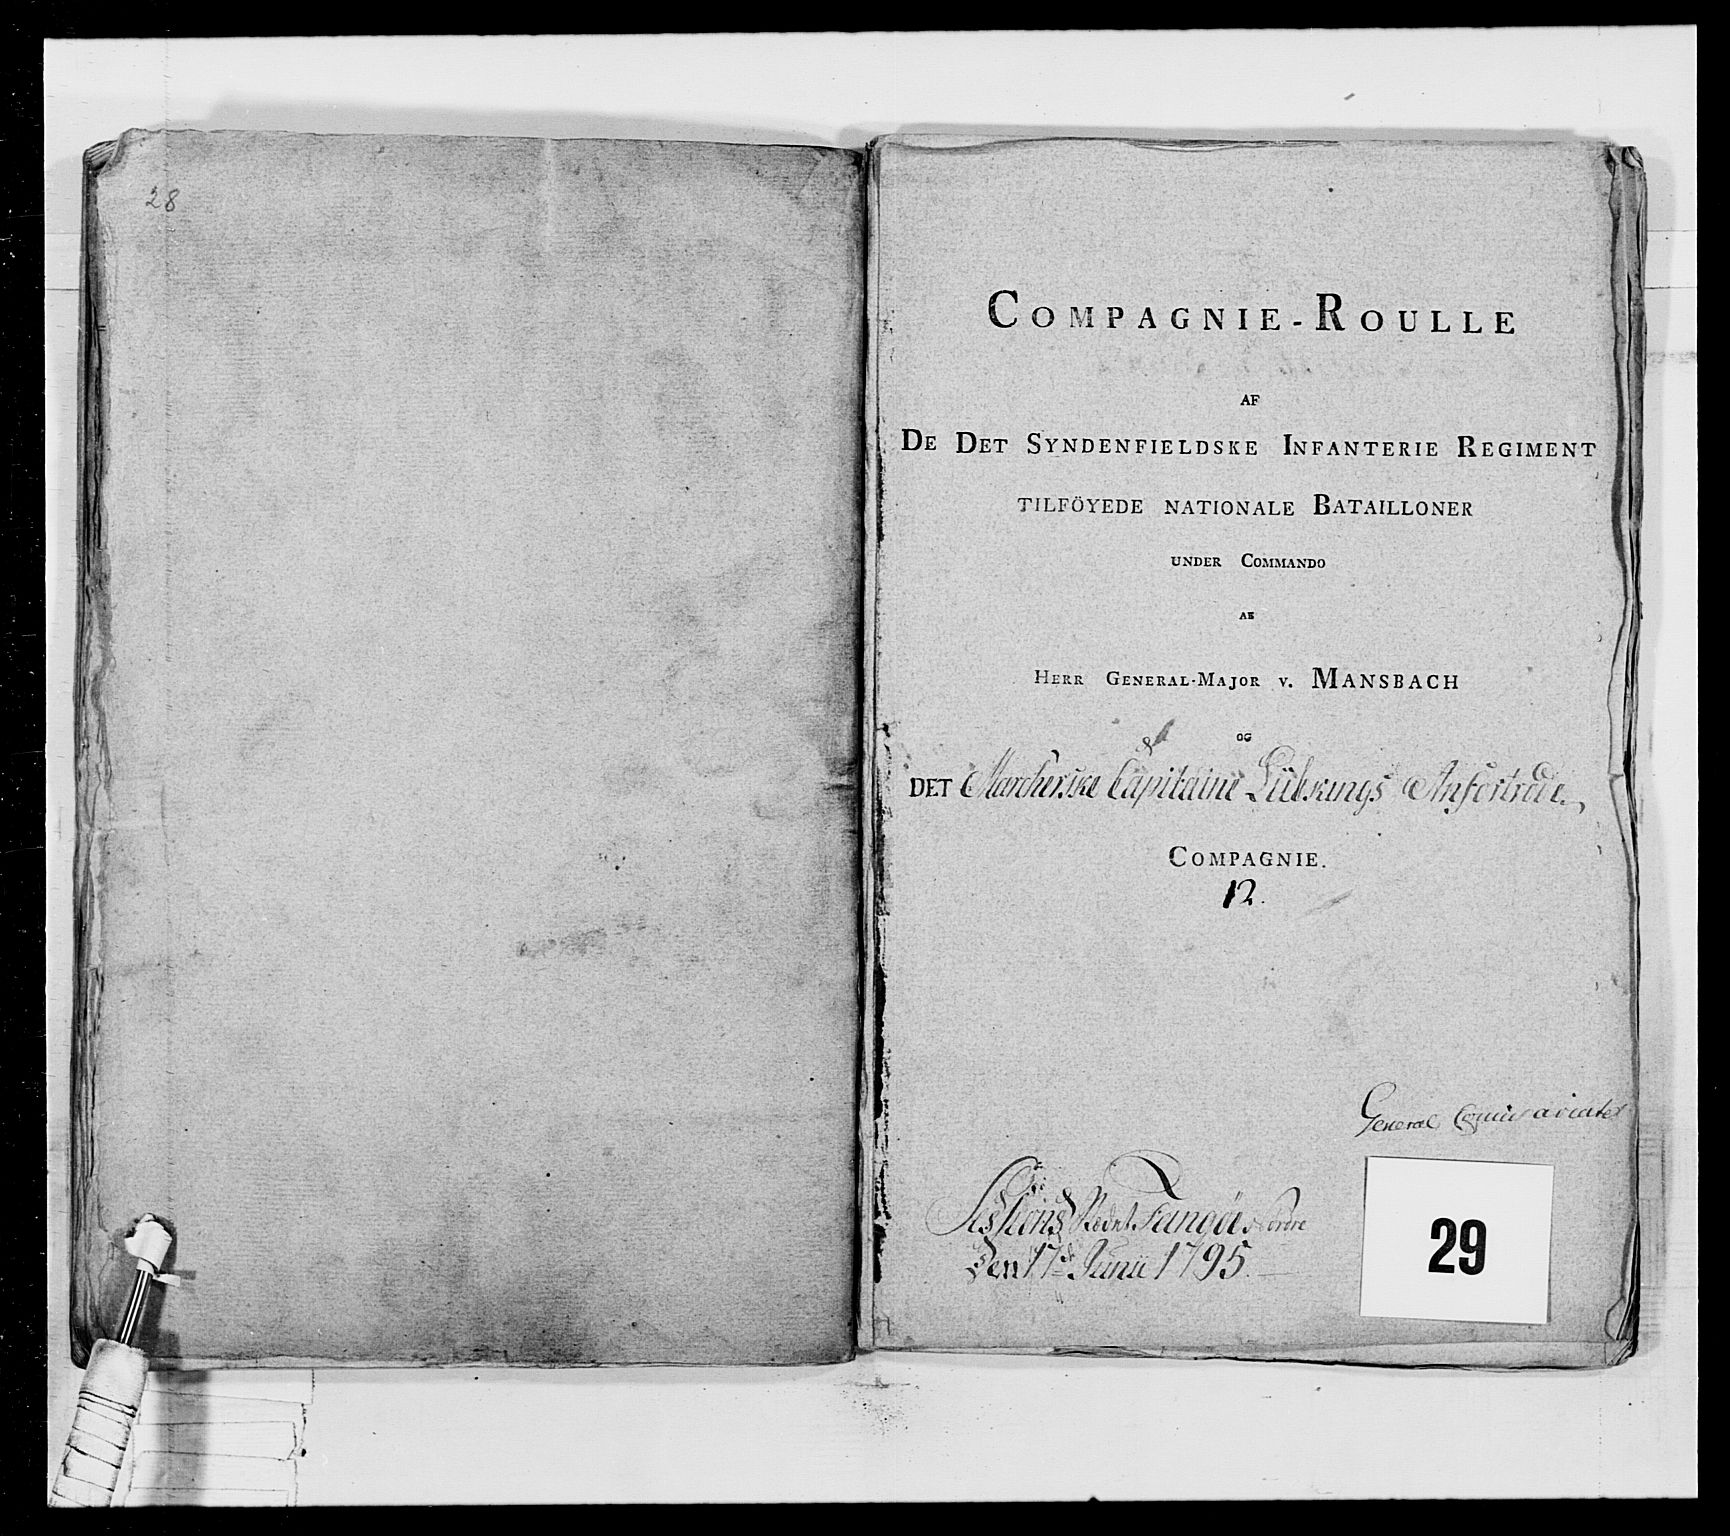 28
COMPAGNIE-ROULLE
AF
DE DET SYNDENFIELDSKE INFANTERIE REGIMENT
TILFÖYEDE NATIONALE BATAILLONER
UNDER COMMANDO
AF
HERR GENERAL-MAJOR V. MANSBACH
OG
DET Marcherske Capitaine Anfortroede
COMPAGNIE.
12.
General
Sessions
Den 17de Junii 1795.
29